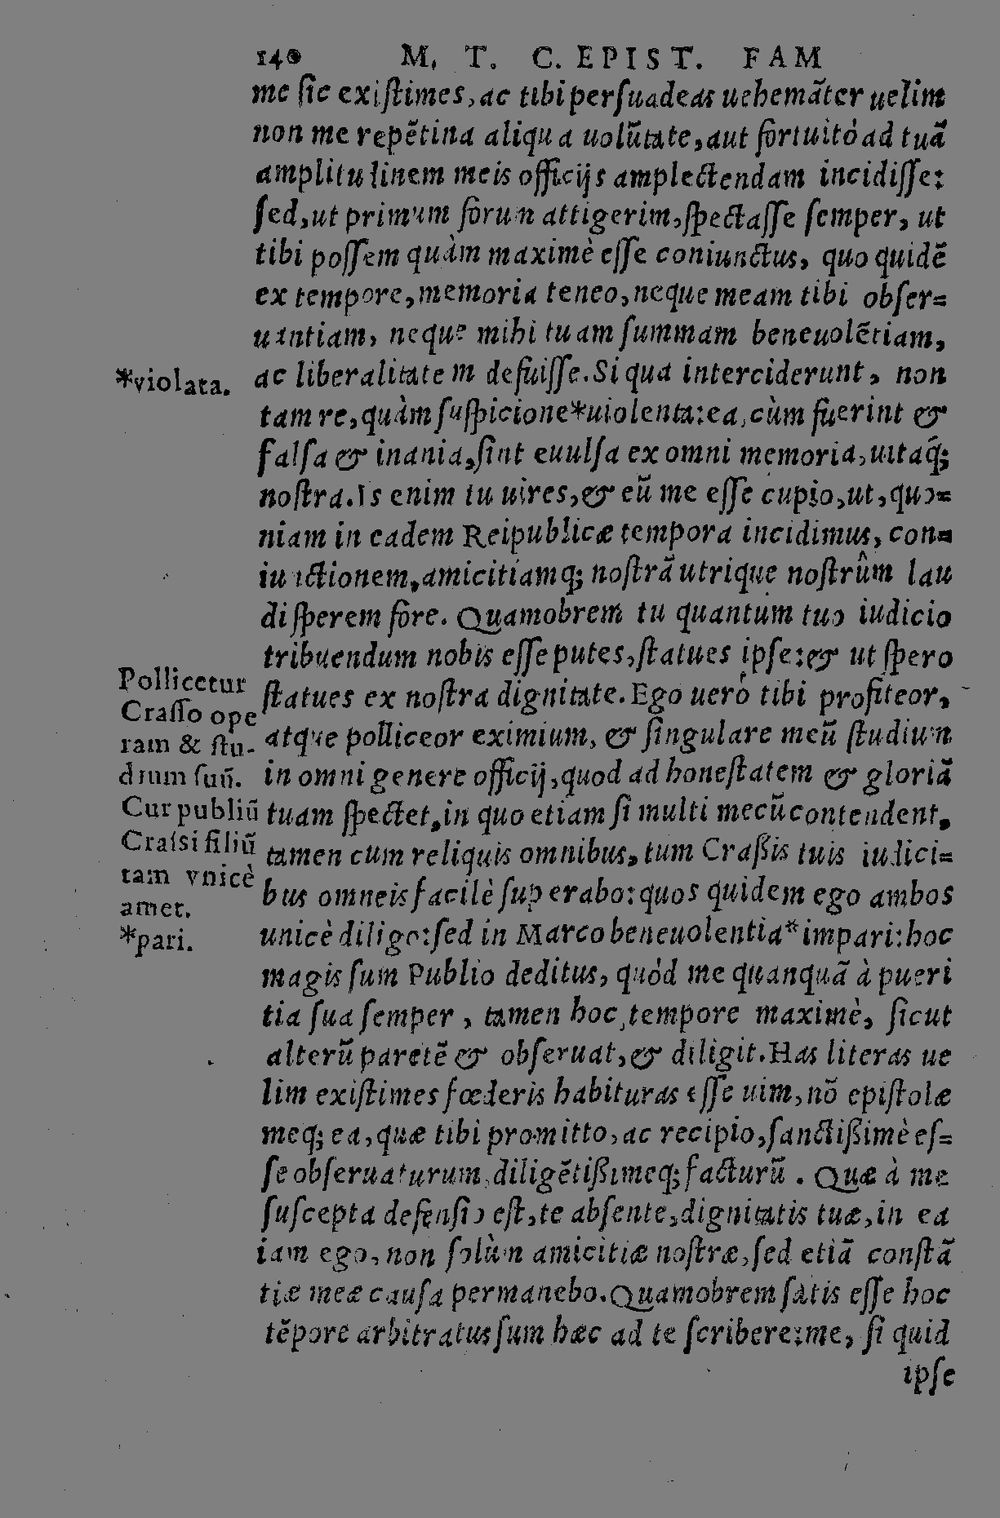 140 M. T. C. EPIST. FAM
me ſic exiſtimes, ac tibi perſuadeas uehemãter uelim
non me repẽtina aliqua uolũtate, aut fortuitò ad tuã
amplitudinem meis officijs amplectendam incidiſſe:
ſed, ut primum forum attigerim, ſpectaſſe ſemper, ut
tibi poſſem quàm maximè eſſe coniunctus, quo quidẽ
ex tempore, memoria teneo, neque meam tibi obſer=
uantiam, neque mihi tuam ſummam beneuolẽtiam,
*violata.
ac liberalitatem defuiſſe. Si qua interciderunt, non
tam re, quàm ſuſpicione*uiolenta: ea, cùm fuerint &
falſa & inania, ſint euulſa ex omni memoria, uitaq́;
noſtra. Is enim tu uires, & eũ me eſſe cupio, ut, quo=
niam in eadem Reipublicæ tempora incidimus, con=
iunctionem, amicitiamq; noſtrã utrique noſtrûm lau
di ſperem fore. Quamobrem tu quantum tuo iudicio
tribuendum nobis eſſe putes, ſtatues ipſe: & ut ſpero
ſtatues ex noſtra dignitate. Ego uerò tibi profiteor,
atque polliceor eximium, & ſingulare meũ ſtudium
in omni genere officij, quod ad honeſtatem & gloriã
tuam ſpectet, in quo etiam ſi multi mecũ contendent,
tamen cum reliquis omnibus, tum Craßis tuis iudici=
bus omneis facilè ſuperabo: quos quidem ego ambos
unicè diligo: ſed in Marco beneuolentia*impari: hoc
magis ſum Publio deditus, quòd me quanquã à pueri
tia ſua ſemper, tamen hoc tempore maximè, ſicut
alterũ paretẽ & obſeruat, & diligit. Has literas ue
lim exiſtimes fœderis habituras eſſe uim, nõ epiſtolæ
meq; ea, quæ tibi promitto, ac recipio, ſanctißimè eſ=
ſe obſeruaturum, diligẽtißimeq; facturũ. Quæ à me
ſuſcepta defenſio eſt, te abſente, dignitatis tuæ, in ea
iam ego, non ſolùm amicitiæ noſtræ, ſed etiã conſtã
tiæ meæ cauſa permanebo. Quamobrem ſatis eſſe hoc
tẽpore arbitratus ſum hæc ad te ſcribere: me, ſi quid
ipſe
Pollicetur
Craſſo ope
ram & ſtu-
dium ſuũ.
Cur publiũ
Craſsi filiũ
tam vnicè
amet.
*pari.